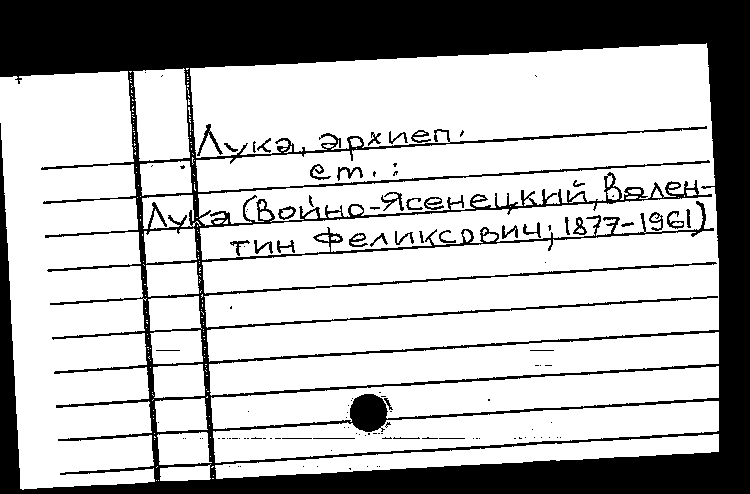 Лука, архиеп.
ст. :
Лука (Войно-Ясенецкий, Вален-
тин Феликсович; 1877-1961)